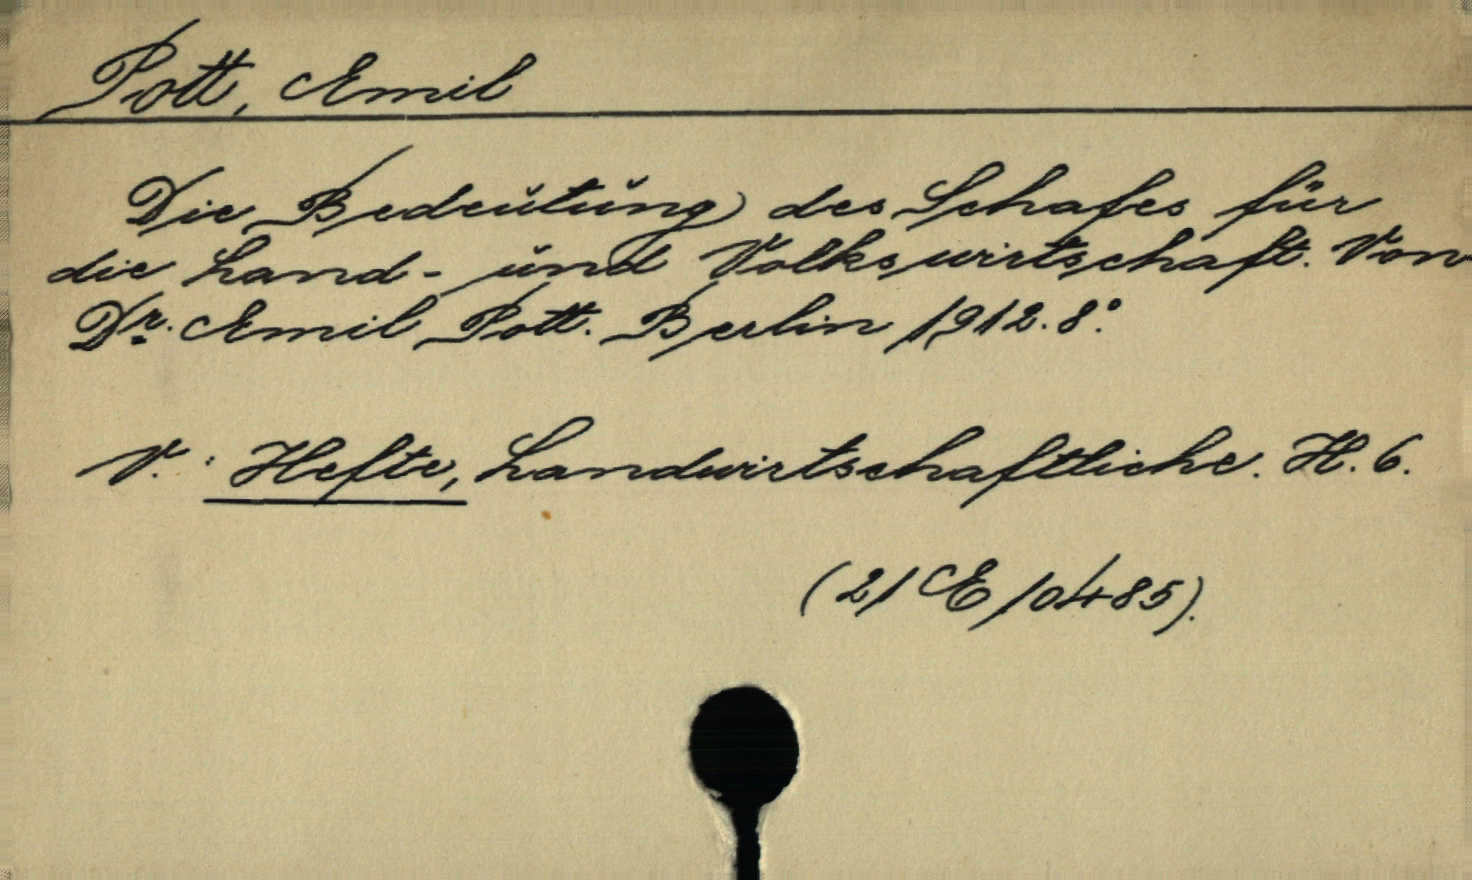 Pott, Emil
Die Bedeutung des Schafes für
die Land- und Volkswirtschaft. Von
Dr. Emil Pott. Berlin 1912. 8°.
V.: Hefte, Landwirtschaftliche. H. 6.
(21 E 10485).